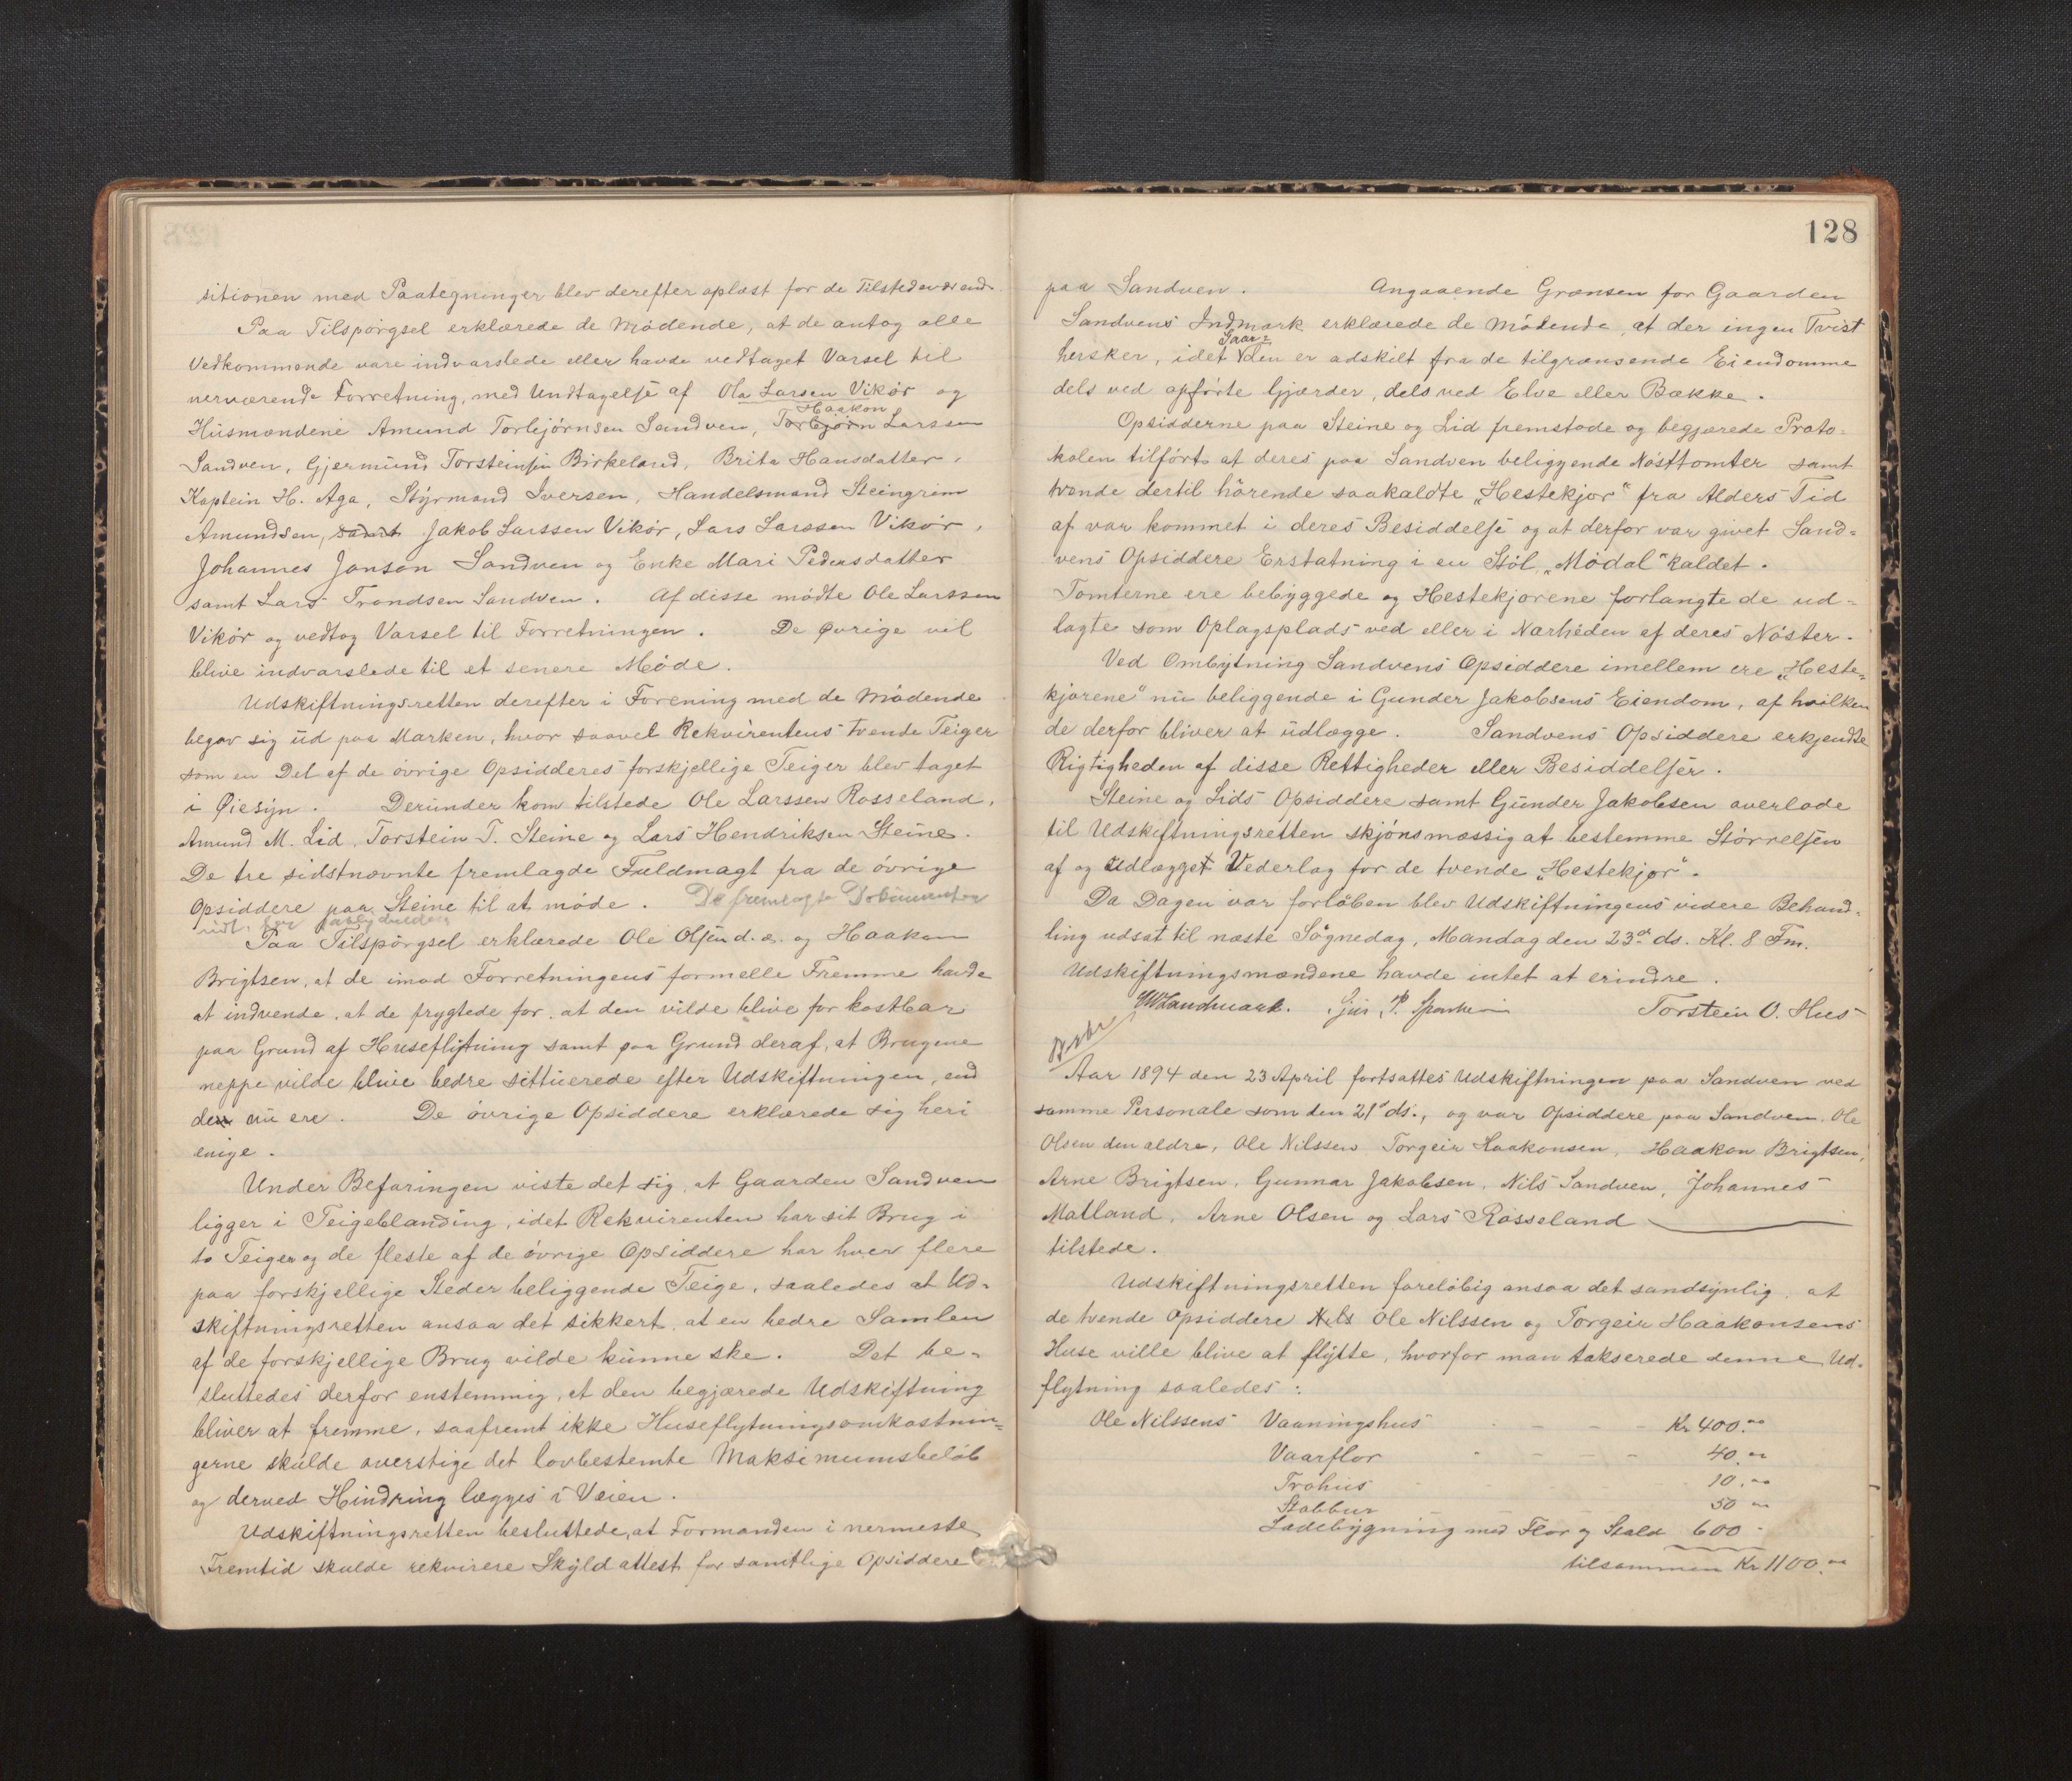 sitionen med Paategninger blev derefter oplæst for de Tilstedeværende.
Paa Tilspörgsel erklærede de Mödende, at de antog alle
Vedkommende vare indvarslede eller havde vedtaget Varsel til
nerværende Forretning, med Undtagelse af Ola Larsen Vikör og
Haakon
Husmændene Amund Torbjörnsen Sandven, Torbjörn Larssen
Sandven, Gjermund Torsteinsen Birkeland, Brita Hansdatter,
Kaptein H. Aga, Styrmand Iversen, Handelsmand Steingrim
Amundsen, samt Jakob Larssen Vikör, Lars Larssen Vikör,
Johannes Janson Sandven og Enke Mari Pedersdatter
samt Lars Trondsen Sandven. Af disse mödte Ole Larssen
Vikör og vedtog Varsel til Forretningen. De Øvrige vil
blive indvarslede til et senere Möde.
Udskiftningsretten derefter i Forening med de Mödende
begav sig ud paa Marken, hvor saavel Rekvirentens tvende Teiger
som en Del af de övrige Opsidderes forskjellige Teiger blev taget
i Øiesyn. Derunder kom tilstede Ole Larssen Rosseland,
Amund M. Lid, Torstein T. Steine og Lars Hendriksen Steine.
De tre sidstnævnte fremlagde Fuldmagt fra de övrige
Opsiddere paa Steine til at möde. De fremlagte Dokumenter
Paa Tilspörgsel erklærede Ole Olsen d. æ. og Haakon
Brigtsen, at de imod Forretningens formelle Fremme havde
at indvende, at de frygtede for, at den vilde blive for kostbar
paa Grund af Huseflytning samt paa Grund deraf, at Brugene
neppe vilde blive bedre sittuerede efter Udskiftningen, end
de nu ere. De övrige Opsiddere erklærede sig heri
enige.
Under Befaringen viste det sig, at Gaarden Sandven
ligger i Teigeblanding, idet Rekvirenten har sit Brug i
to Teiger og de fleste af de övrige Opsiddere har hver flere
paa forskjellige Steder beliggende Teige, saaledes at Ud-
skiftningsretten ansaa det sikkert, at en bedre Samlen
af de forskjellige Brug vilde kunne ske. Det be-
sluttedes derfor enstemmig, at den begjærede Udskiftning
bliver at fremme, saafremt ikke Huseflytningsomkostnin-
gerne skulde overstige det lovbestemte Maksimumsbelöb
og derved Hindring lægges i Veien.
Udskiftningsretten besluttede, at Formanden i nermeste
Fremtid skulde rekvirere Skyldattest for samtlige Opsiddere
128
paa Sandven. Angaaende Grænsen for Gaarden
Sandvens Indmark erklærede de Mödende, at der ingen Tvist
Gaar-
hersker, idet den er adskilt fra de tilgrænsende Eiendomme
dels ved opförte Gjærder, dels ved Elve eller Bække.
Opsidderne paa Steine og Lid fremstode og begjærede Proto-
kolen tilfört at deres paa Sandven beliggende Nösttomter samt
tvende dertil hörende saakaldte „Hestekjor“ fra Alders Tid
af var kommet i deres Besiddelse og at derfor var givet Sand-
vens Opsiddere Erstatning i en Stöl „Mödal“ kaldet.
Tomterne ere bebyggede og Hestekjorene forlangte de ud-
lagte som Oplagsplads ved eller i Nærheden af deres Nöster.
Ved Ombytning Sandvens Opsiddere imellem ere „Heste-
kjorene“ nu beliggende i Gunder Jakobsens Eiendom, af hvilken
de derfor bliver at udlægge. Sandvens Opsiddere erkjendte
Rigtigheden af disse Rettigheder eller Besiddelser.
Steine og Lids Opsiddere samt Gunder Jakobsen overlode
til Udskiftningsretten skjönsmæssig at bestemme Störrelsen
af og Udlægget Vederlag for de tvende „Hestekjor“.
Da Dagen var forlöben blev Udskiftningens videre Behand-
ling udsat til næste Sögnedag, Mandag den 23de ds. Kl. 8 Fm.
Udskiftningsmændene havde intet at erindre.
Landmark. P. Torstein O. Hus
Aar 1894 den 23 April fortsattes Udskiftningen paa Sandven ved
samme Personale som den 21de ds., og var Opsiddere paa Sandven Ole
Olsen den ældre, Ole Nilssen Torgeir Haakonsen, Haakon Brigtsen,
Arne Brigtsen, Gunnar Jakobsen, Nils Sandven, Johannes
Matland, Arne Olsen og Lars Rosseland
tilstede.
Udskiftningsretten foreløbig ansaa det sandsynlig, at
de tvende Opsiddere Nils Ole Nilssen og Torgeir Haakonsens
Huse ville blive at flytte, hvorfor man takserede denne Ud-
flytning saaledes:
Ole Nilssens Vaaningshus - - - Kr 400.00
Vaarflor - - - - 40.00
Trohus 10.00
Stabbur 50 00
Ladebygning med Flor og Stald 600 -
tilsammen Kr 1100.00